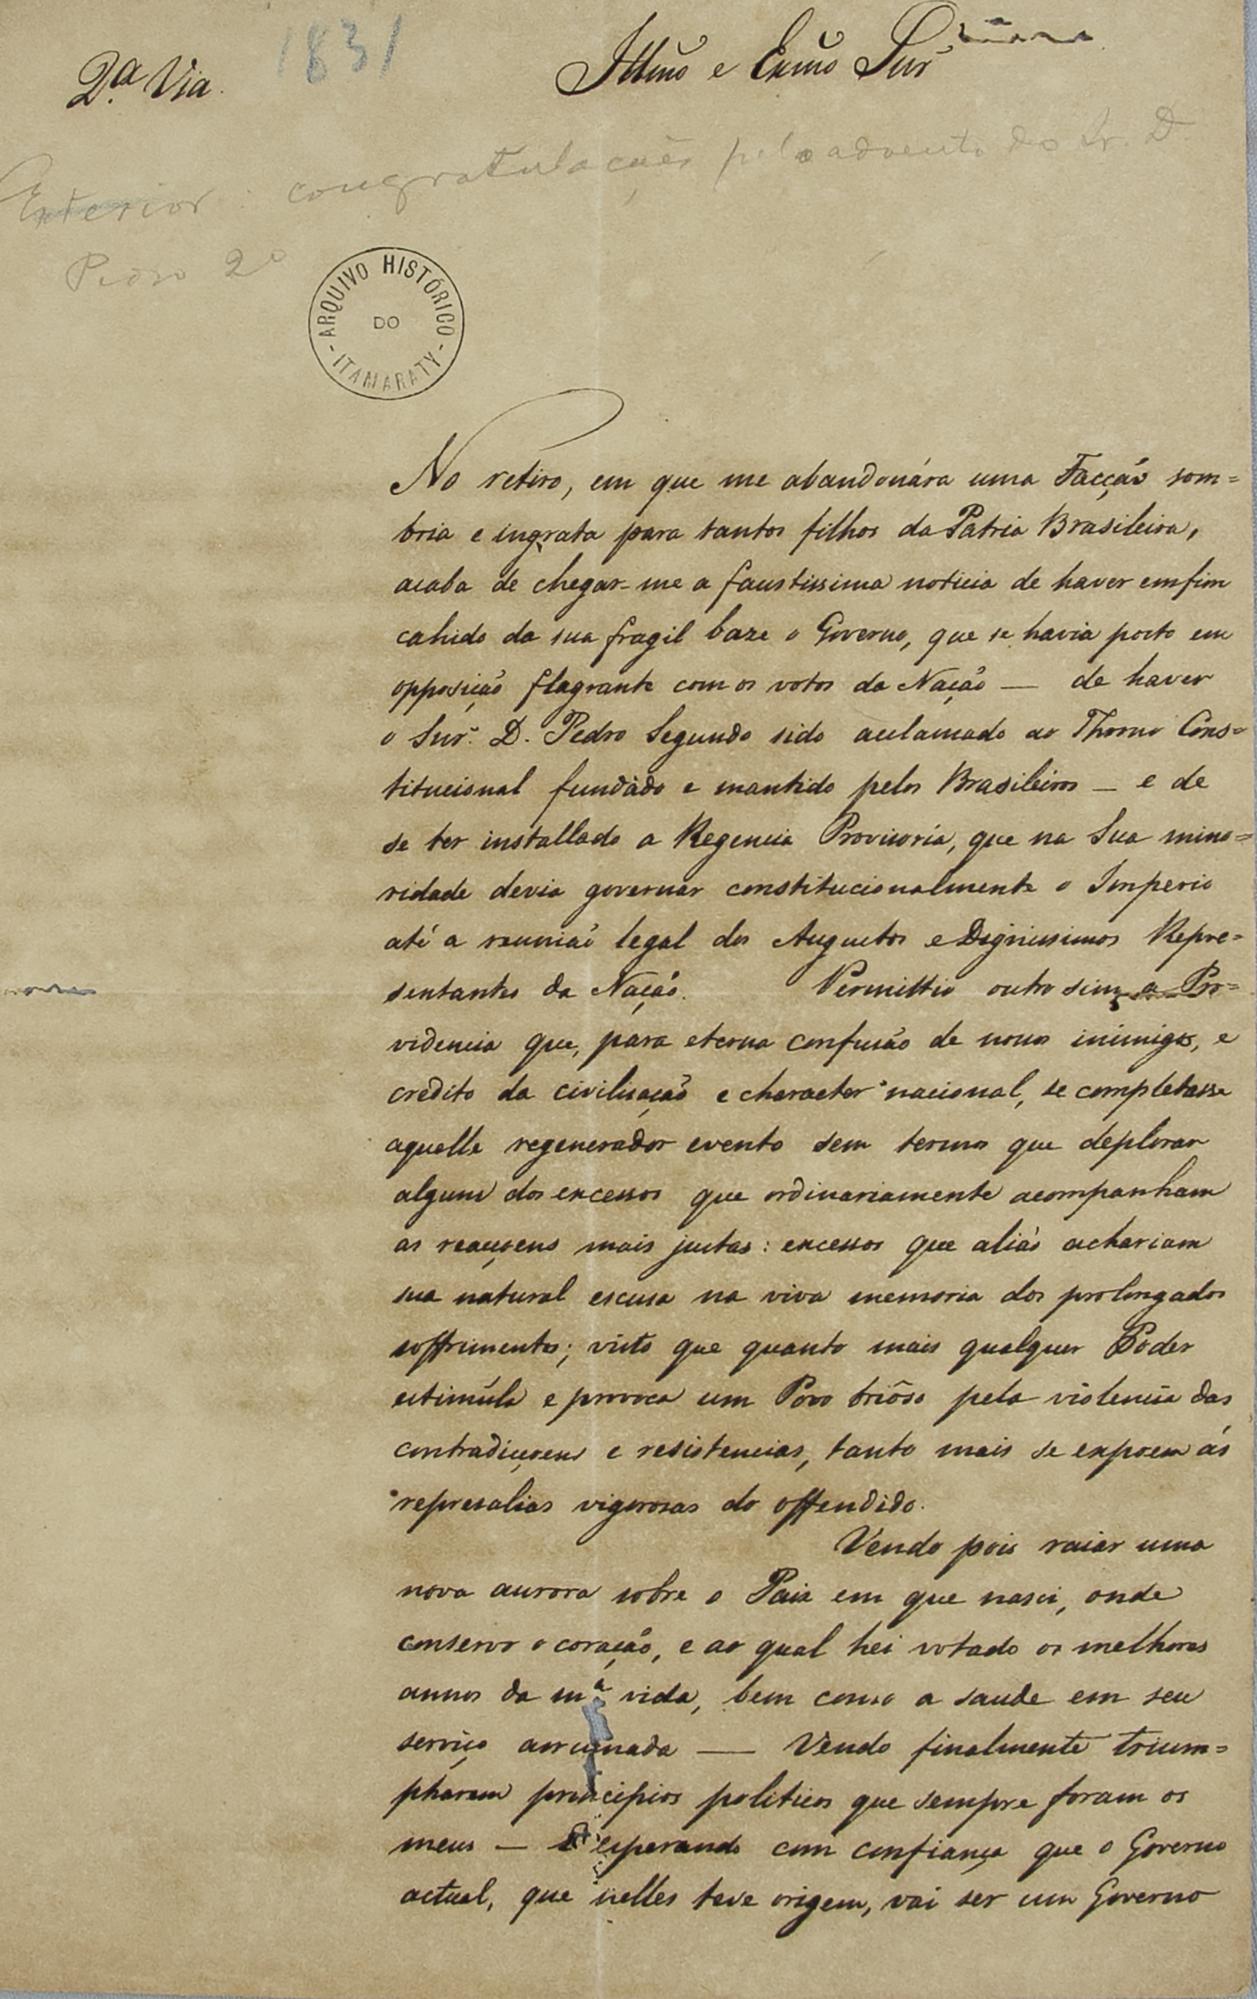 2.ª Via.
1831
Illmo e Exmo Snr
Exterior: congratulações pelo advento do Sr. D.
Pedro 2º
ARQUIVO HISTÓRICO
DO
- ITAMARATY -
No retiro, em que me abandonára uma Facçáo som=
bria e ingrata para tantos filhos da Patria Brasileira,
acaba de chegar-me a faustissima noticia de haver emfim
cahido da sua fragil baze o Governo, que se havia posto em
opposiçáo flagrante com os votos da Naçáo — de haver
o Snr. D. Pedro Segundo sido acclamado ao Throno Cons=
titucional fundado e mantido pelos Brasileiros — e de
se ter installado a Regencia Provisoria, que na Sua mino=
ridade devia governar constitucionalmente o Imperio
até a reuniáo legal dos Augustos e Dignissimos Repre=
sentantes da Naçáo. Permittio outro sim a Pro=
videncia que, para eterna confusáo de nossos inimigos, e
credito da civilisaçáo e character nacional, se completasse
aquelle regenerador evento sem termos que deplorar
algum dos excessos que ordinariamente acompanham
as reacçoens mais justas: excessos que aliás achariam
sua natural escusa na viva memoria dos prolongados
soffrimentos; visto que quanto mais qualquer Poder
estimúla e provoca um Povo briôso pela violencia das
contradicçoens e resistencias, tanto mais se expoem ás
represalias vigorosas do offendido.
Vendo pois raiar uma
nova aurora sobre o Paiz em que nasci, onde
conservo o coraçáo, e ao qual hei votado os melhores
annos da m.ª vida, bem como a saude em seu
serviço arruinada — Vendo finalmente trium=
pharem principios politicos que sempre foram os
meus — E esperando com confiança que o Governo
actual, que nelles teve origem, vai ser um Governo